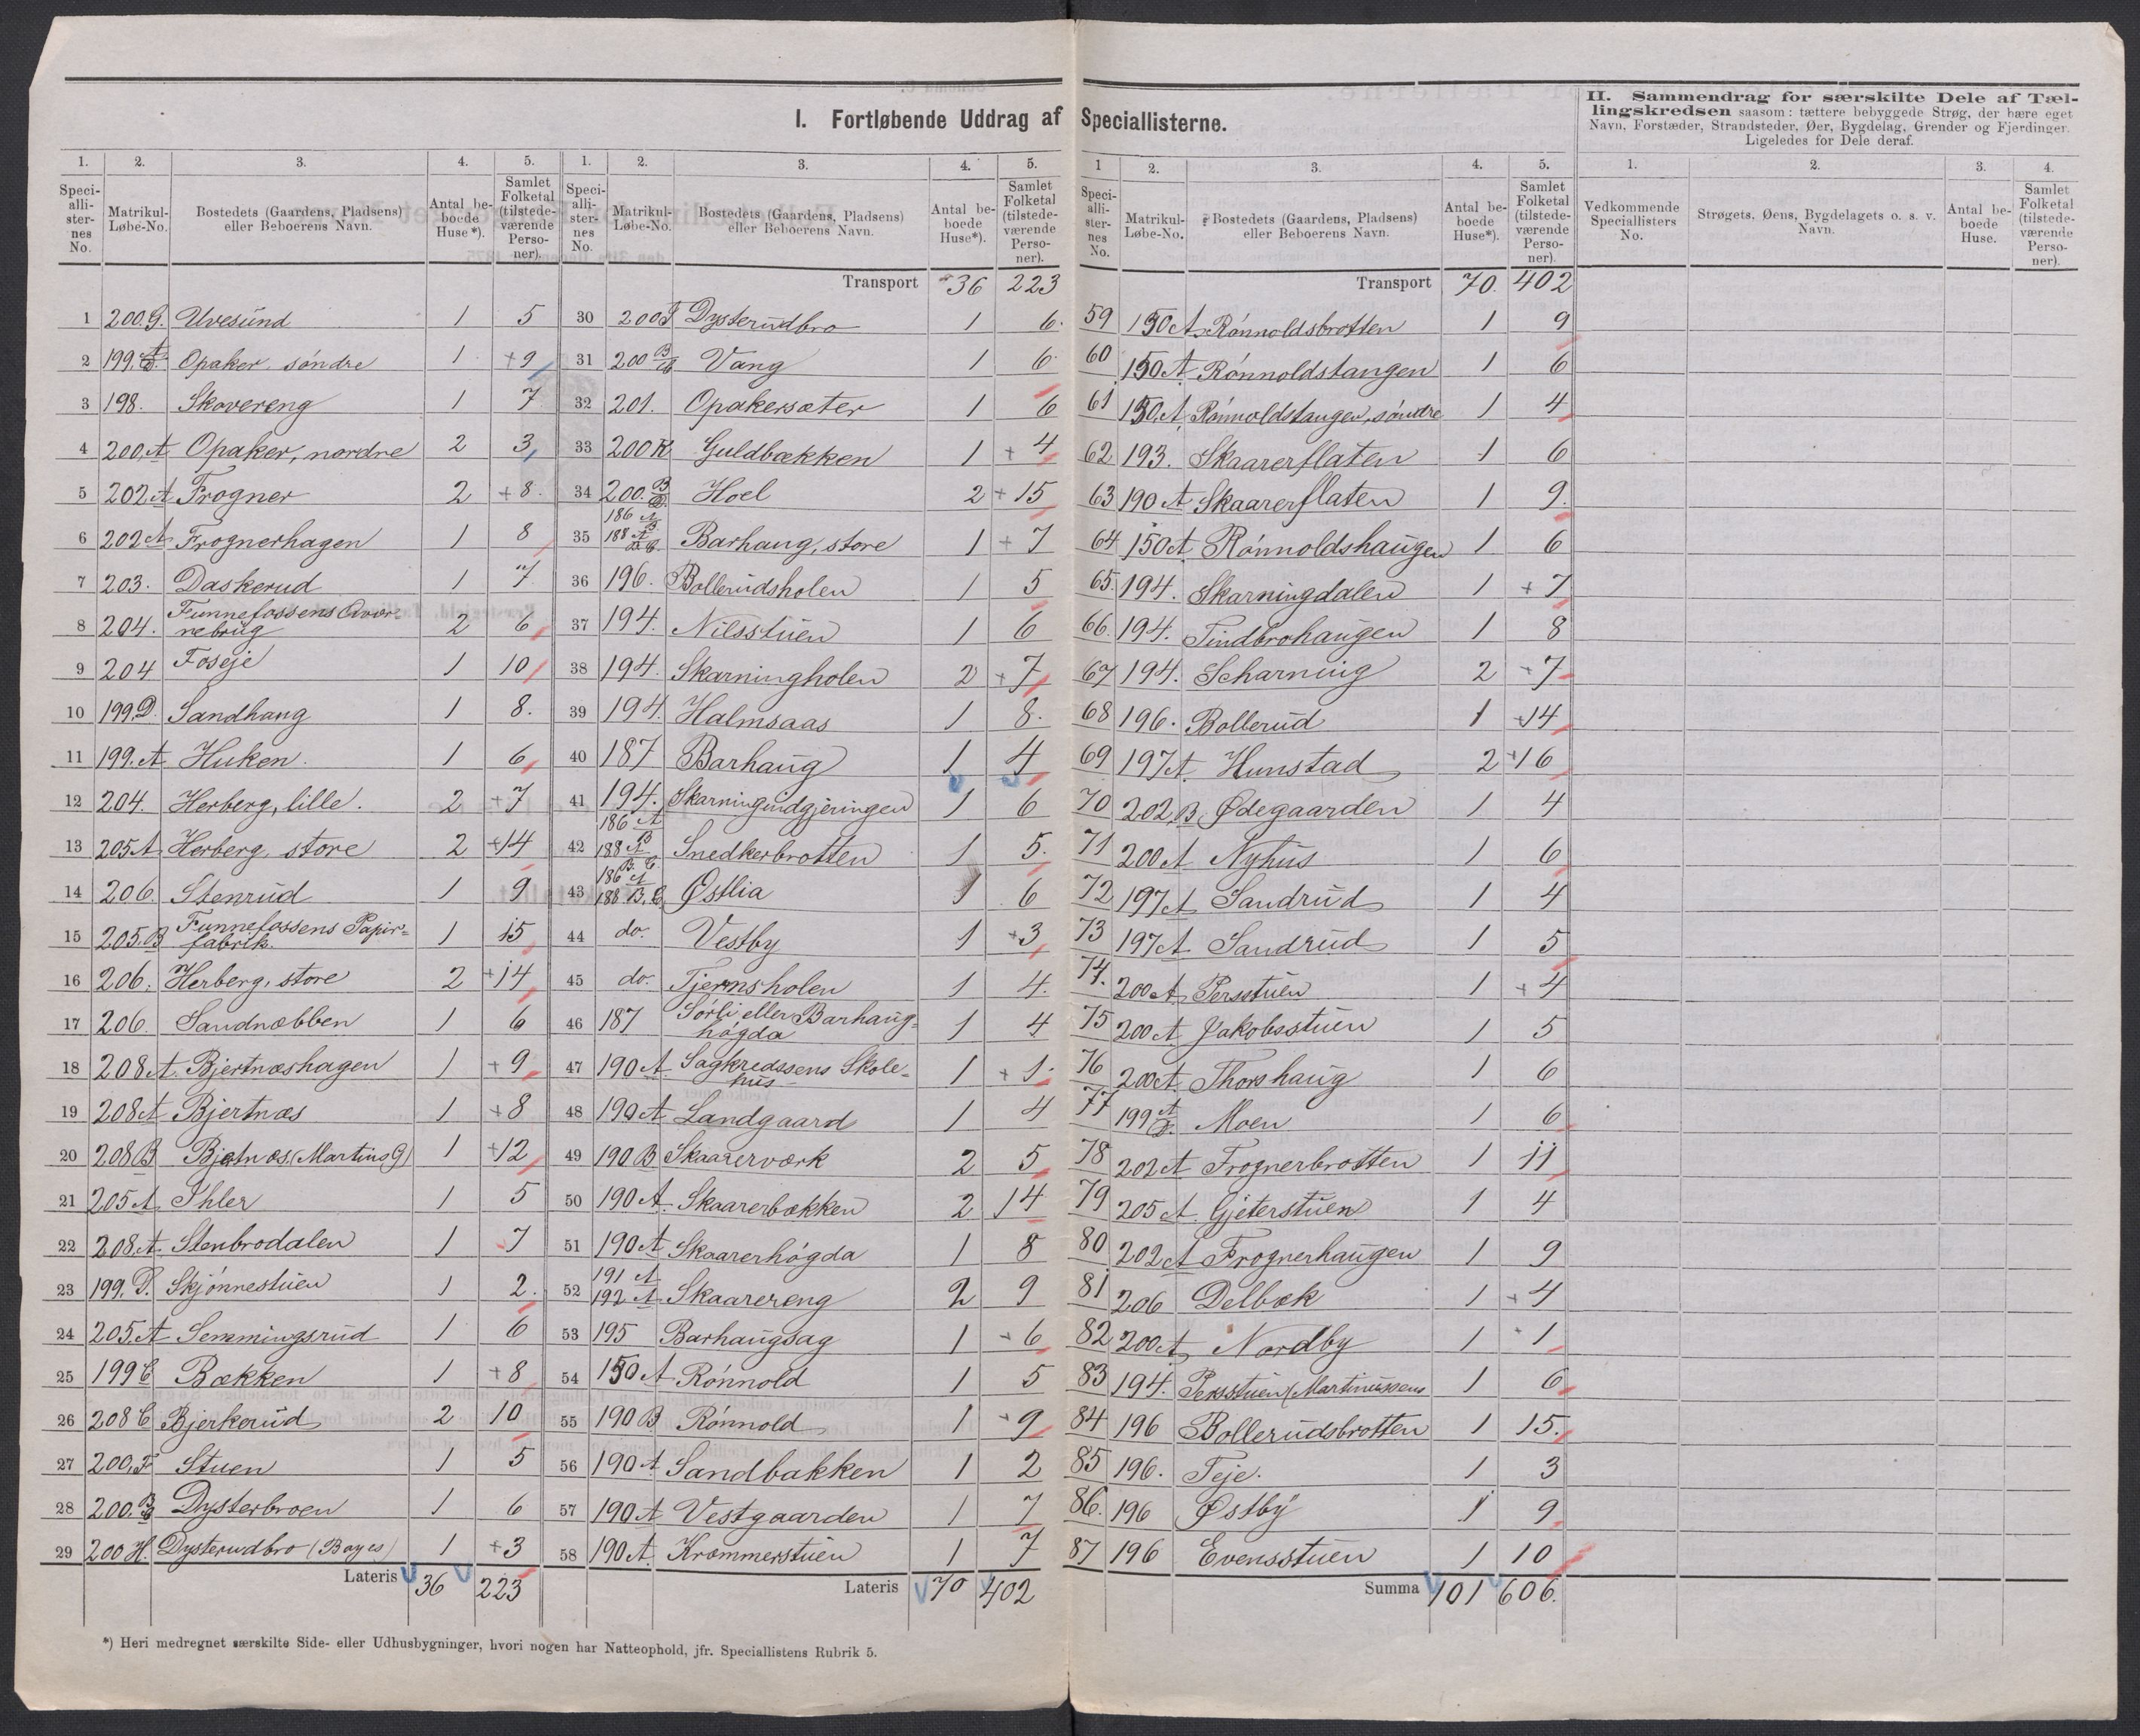 I. Fortløbende Uddrag af Speciallisterne.
II. Sammendrag for særskilte Dele af Tællingskredsen saasom: tættere bebyggede Strøg, der bære eget Navn, Forstæder, Strandsteder, Øer, Bygdelag, Grender og Fjerdinger. Ligeledes for Dele deraf.
1. 2. 3. 4. 5.
Speciallisternes No. | Matrikul-Løbe-No. | Bostedets (Gaardens, Pladsens) eller Beboerens Navn. | Antal beboede Huse*). | Samlet Folketal (tilstedeværende Personer).
1 200.G. Uvesund 1 5
2 199. Opaker søndre 1 +9
3 198. Skovereng 1 7
4 200.A Opaker, nordre 2 3
5 202 A Frogner 2 +8
6 202 A Frognerhagen 1 8
7 203. Daskerud 1 7
8 204. Funnefossens Qværnebrug 2 6
9 204 Foseje 1 10
10 199.D. Sandhaug 1 8.
11 199.A Huken. 1 6
12 204. Herberg, lille. 2 +7
13 205A Herberg, store 2 +14
14 206. Stenrud 1 9
15 205.B Funnefossens Papirfabrik. 1 15
16 206. Herberg, store 2 +14
17 206. Sandnæbben 1 6
18 208 A. Bjertnæshagen 1 +9
19 208 A Bjertnæs 1 +8
20 208 B Bjetnæs (Martius G) 1 +12
21 205 A Ihler 1 5
22 208.A. Stenbrodalen 1 7
23 199. D. Skjønnestuen 1 2.
24 205.A Semmingsrud 1 6
25 199 C Bækken 1 +8
26 208 C Bjerkerud 2 10
27 200.F Stuen 1 5
28 200. Dysterbroen 1 6
29 200 H. Dysterudbro (Bøyes) 1 +3
Lateris 36 223
*) Heri medregnet særskilte Side- eller Udhusbygninger, hvori nogen har Natteophold, jfr. Speciallistens Rubrik 5.
1. 2. 3. 4. 5.
Speciallisternes No. | Matrikul-Løbe-No. | Bostedets (Gaardens, Pladsens) eller Beboerens Navn. | Antal beboede Huse*). | Samlet Folketal (tilstedeværende Personer).
Transport 36 223
30 200 Dysterudbro 1 6.
31 200 B Vang 1 6
32 201. Opakersæter 1 6
33 200 K Guldbækken 1 +4
34 200. B Hoel 2 +15
35 186 A 188 A B C. Barhaug, store 1 +7
36 196. Bollerudsholen 1 5
37 194. Nilsstuen 1 6
38 194. Skarningholen 2 +7
39 194. Halmsaas 1 8.
40 187 Barhaug 1 4
41 194. Skarningudgjeringen 1 6
42 186 A 188 A B. C Snedkerbrotten 1 5.
43 186 A 188 B, C Østlia 1 6
44 do. Vestby 1 +3
45 do. Tjernsholen 1 4.
46 187 Sørli eller Barhaughøgda 1 4
47 190 A. Sagkredssens Skolehus 1 +1
48 190 A Landgaard 1 4
49 190 B Skaarerværk 2 5
50 190 A. Skaarerbækken 2 14
51 190 A Skaarerhøgda 1 8
52 191 A 192 A Skaarereng 2 9
53 195 Barhaugsag 1 +6
54 150 A Rønnold 1 5
55 190 B Rønnold 1 +9
56 190 A Sandbakken 1 2
57 190 A Vestgaarden 1 7
58 190 A. Kræmmerstuen 1 7
Lateris 70 402
1 2. 3. 4. 5.
Speciallisternes No. | Matrikul-Løbe-No. | Bostedets (Gaardens, Pladsens) eller Beboerens Navn. | Antal beboede Huse*). | Samlet Folketal (tilstedeværende Personer).
Transport 70. 402
59 150 A Rønnoldsbrotten 1 9
60 150 A Rønnoldstangen 1 6
61 150.A Rønnoldstangen, søndre 1 4
62 193. Skaarerflaten 1 6
63 190 A Skaarerflaten 1 9.
64 150 A Rønnoldshaugen 1 6
65. 194. Skarningdalen 1 +7
66 194. Tindbrohaugen 1 8
67 194. Scharning 2 +7
68 196. Bollerud 1 +14
69 197A Hunstad 2 +16
70 202 B Ødegaarden 1 4
71 200 A Nyhus 1 6
72 197 A Sandrud 1 4
73 197 A Sandrud 1 5
74. 200 A. Persstuen 1 +4
75 200 A Jakobsstuen 1 5
76 200 A. Thorshaug 1 6
77 199 Moen 1 6
78 202 A Frognerbrotten 1 11
79 205 A Gjeterstuen 1 4
80 202 A Frognerhaugen 1 9
81 206 Delbæk 1 +4
82 200 A Nordby 1 1
83 194. Persstuen (Martinussens 1 6
84 196 Bollerudsbrotten 1 15.
85 196. Teje. 1 3
86. 196 Østby 1 9
87 196 Evensstuen 1 10
Summa 101 606.
1. 2. 3. 4.
Vedkommende Speciallisters No. | Strøgets, Øens, Bygdelagets o. s. v. Navn. | Antal beboede Huse. | Samlet Folketal (tilstedeværende Personer).